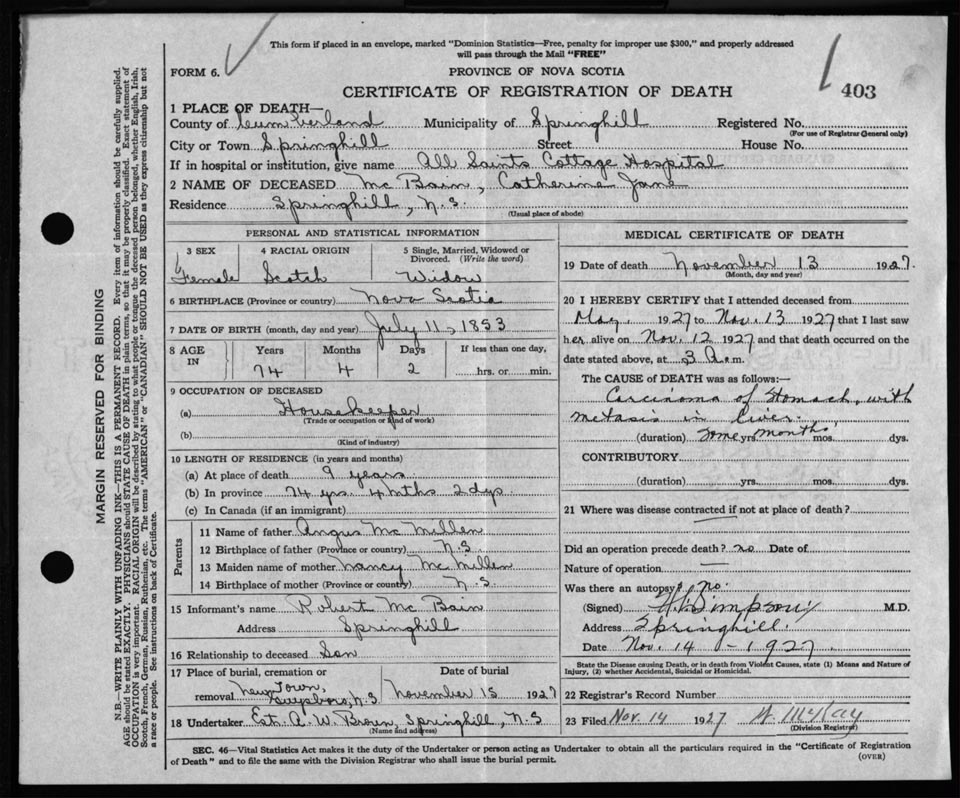 This form if placed in an envelope, marked "Dominion Statistics—Free, penalty for improper use $300," and properly addressed
will pass through the Mail "FREE"
FORM 6.
PROVINCE OF NOVA SCOTIA
CERTIFICATE OF REGISTRATION OF DEATH
403
1 PLACE OF DEATH—
County of Cumberland Municipality of Springhill Registered No.
(For use of Registrar General only)
City or Town Springhill Street House No.
If in hospital or institution, give name All Saints Cottage Hospital
2 NAME OF DECEASED Mc Bain, Catherine Jane
Residence Springhill, N.S.
(Usual place of abode)
PERSONAL AND STATISTICAL INFORMATION
3 SEX 4 RACIAL ORIGIN 5 Single, Married, Widowed or
Divorced. (Write the word)
Female Scotch Widow
6 BIRTHPLACE (Province or country) Nova Scotia
7 DATE OF BIRTH (month, day and year) July 11, 1853
8 AGE IN Years Months Days If less than one day,
74 4 2 hrs. or min.
9 OCCUPATION OF DECEASED
(a) Housekeeper
(Trade or occupation or kind of work)
(b)
(Kind of industry)
10 LENGTH OF RESIDENCE (in years and months)
(a) At place of death 9 years
(b) In province 74 yrs. 4 mths 2 dys.
(c) In Canada (if an immigrant)
Parents
11 Name of father Angus Mc Millen
12 Birthplace of father (Province or country) N.S.
13 Maiden name of mother Nancy Mc Millen
14 Birthplace of mother (Province or country) N.S.
15 Informant's name Robert Mc Bain
Address Springhill
16 Relationship to deceased Son
17 Place of burial, cremation or Date of burial
removal New Town, Guysboro, N.S November 15 1927
18 Undertaker Est. A. W. Brown, Springhill, N.S
(Name and address)
MEDICAL CERTIFICATE OF DEATH
19 Date of death November 13 1927.
(Month, day and year)
20 I HEREBY CERTIFY that I attended deceased from
May, 1927 to Nov. 13 1927 that I last saw
her alive on Nov. 12 1927 and that death occurred on the
date stated above, at 3 A.m.
The CAUSE OF DEATH was as follows:—
Carcinoma of Stomach, with
metasis in liver.
(duration) some yrs months mos. dys.
CONTRIBUTORY
(duration) yrs. mos. dys.
21 Where was disease contracted if not at place of death?
Did an operation precede death? no Date of
Nature of operation —
Was there an autopsy? no.
(Signed) Simpson M.D.
Address Springhill.
Date Nov. 14 - 1927
State the Disease causing Death, or in death from Violent Causes, state (1) Means and Nature of
Injury, (2) whether Accidental, Suicidal or Homicidal.
22 Registrar's Record Number
23 Filed Nov. 14 1927
(Division Registrar)
SEC. 46—Vital Statistics Act makes it the duty of the Undertaker or person acting as Undertaker to obtain all the particulars required in the "Certificate of Registration
of Death" and to file the same with the Division Registrar who shall issue the burial permit.
(OVER)
MARGIN RESERVED FOR BINDING
N.B.—WRITE PLAINLY WITH UNFADING INK—THIS IS A PERMANENT RECORD. Every item of information should be carefully supplied.
AGE should be stated EXACTLY. PHYSICIANS should STATE CAUSE OF DEATH in plain terms, so that it may be properly classified. Exact statement of
OCCUPATION is very important. RACIAL ORIGIN will be described by stating to what people or tongue the deceased person belonged, whether English, Irish,
Scotch, French, German, Russian, Ruthenian, etc. The terms "AMERICAN" or "CANADIAN" SHOULD NOT BE USED as they express citizenship but not
a race or people. See instructions on back of Certificate.